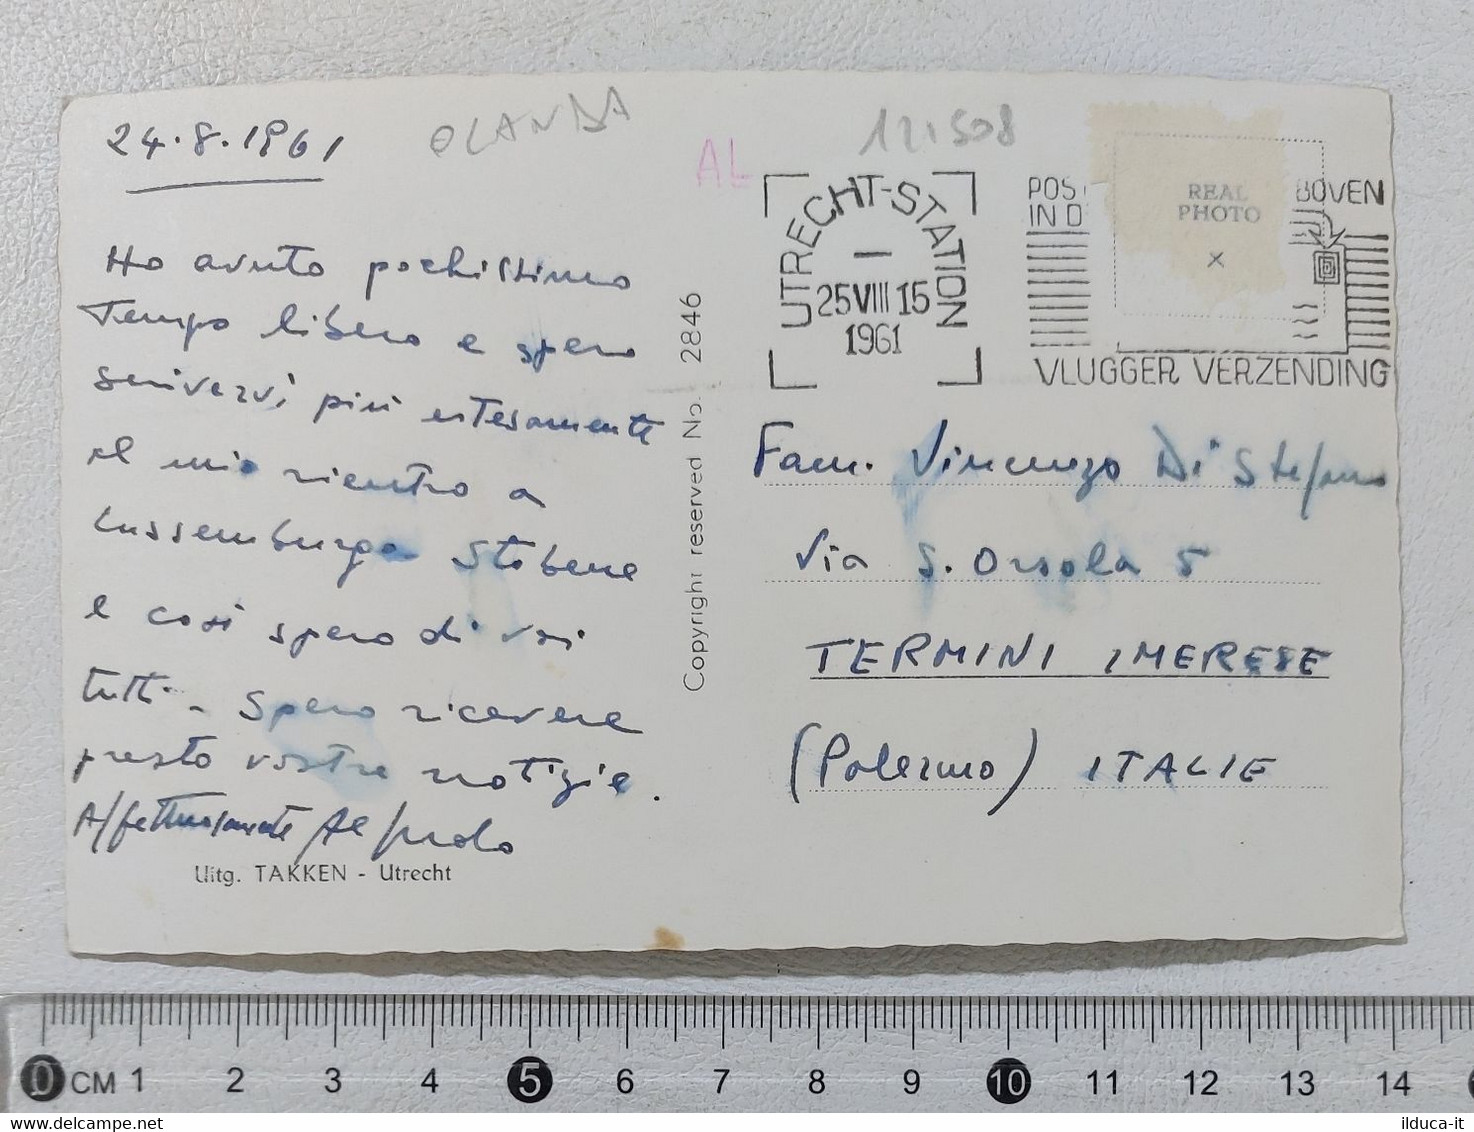 24.8.1961
OLANDA
121508
AL
Ho avuto pochissimo
Tempo libero e spero
scrivervi più estesamente
al mio rientro a
Lussemburgo. Stobene
e così spero di voi
tutti. Spero ricevere
presto vostre notizie.
Affettuosamente
Uitg. TAKKEN - Utrecht
Copyright reserved No. 2846
UTRECHT-STATION
25 VIII 15
1961
POS BOVEN
IN D
VLUGGER VERZENDING
REAL
PHOTO
×
Fam. Vincenzo Di Stefano
Via S. Orsola 5
TERMINI IMERESE
(Palermo) ITALIE
0 CM 1 2 3 4 5 6 7 8 9 10 11 12 13 14
ilduca-it